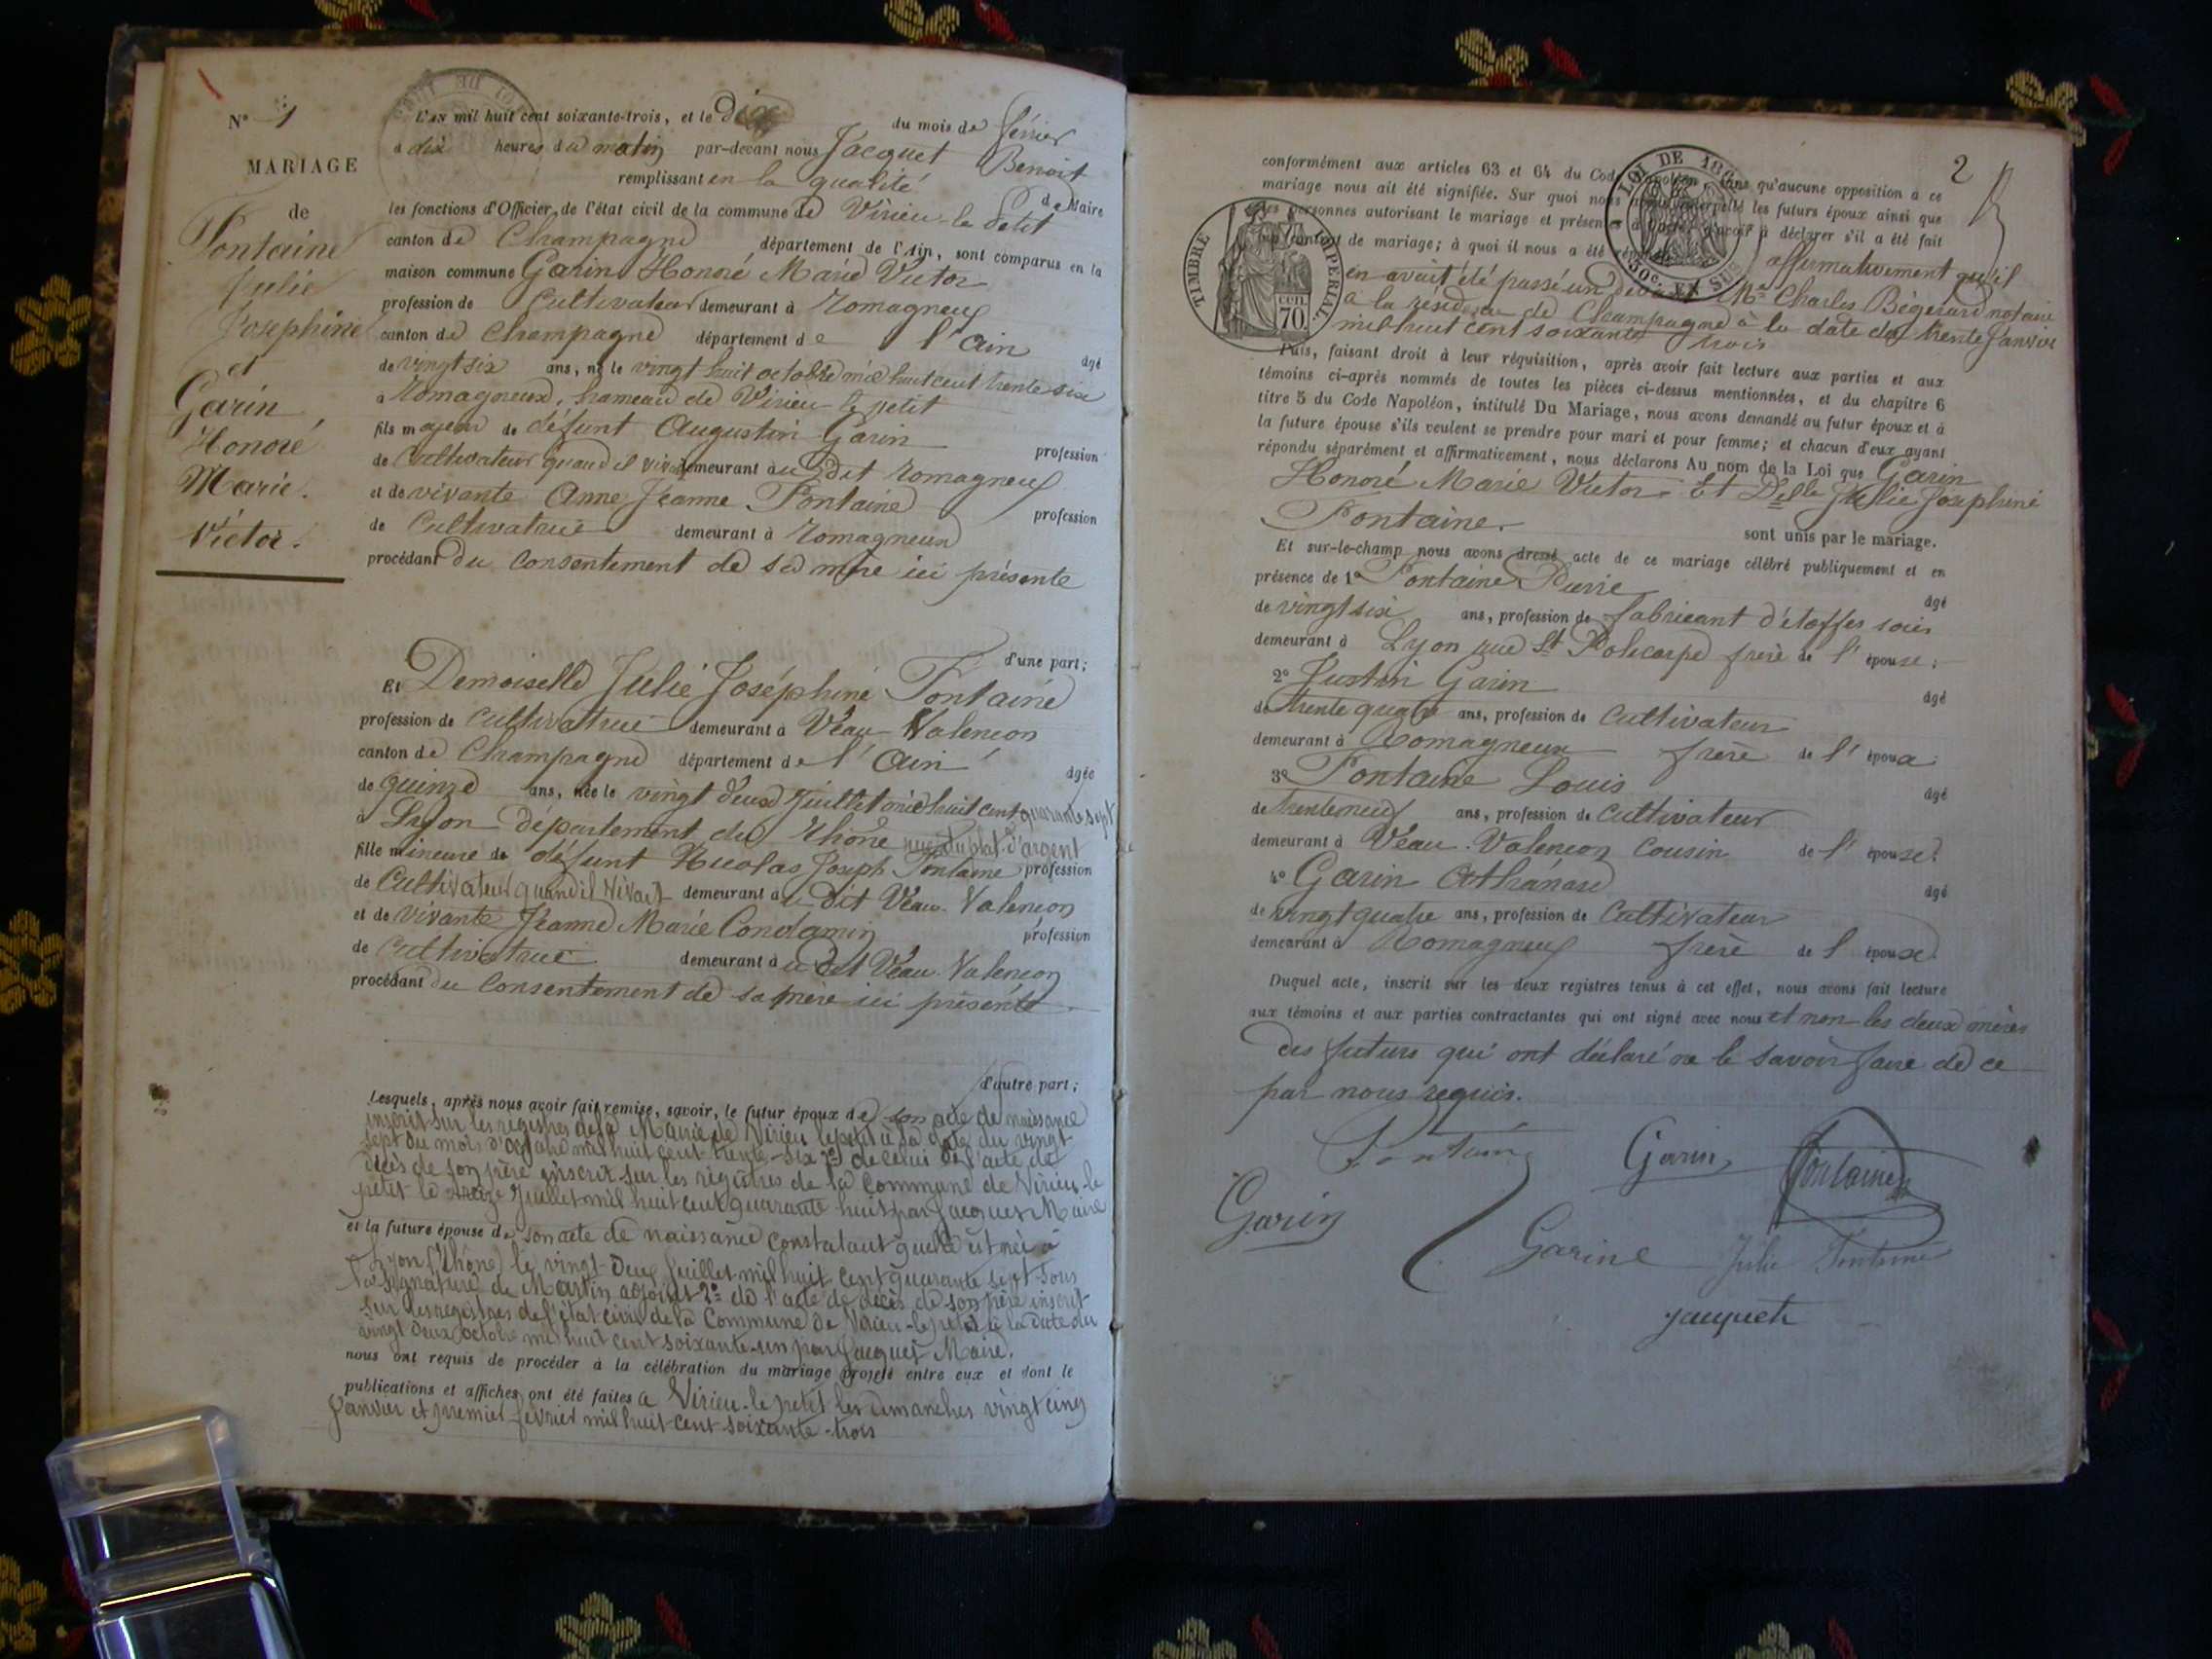 N° 1
MARIAGE
de
Fontaine
Julie
Josephine
et
Garin
Honoré
Marie.
Victor.
L'an mil huit cent soixante-trois, et le dix du mois de février
à dix heures du matin par-devant nous Jacquet Benoit
remplissant en la qualité de Maire
les fonctions d'Officier de l'état civil de la commune de Virieu-le-Petit
canton de Champagne département de l'Ain, sont comparus en la
maison commune Garin Honoré Marie Victor
profession de Cultivateur demeurant à Romagneux
canton de Champagne département de l'Ain âgé
de vingt six ans, né le vingt huit octobre mil huit cent trente six
à Romagneux, hameau de Virieu le petit
fils majeur de défunt Augustin Garin profession
de Cultivateur quand il vivait demeurant au dit Romagneux
et de vivante Anne Jeanne Fontaine profession
de Cultivatrice demeurant à Romagneux
procédant du consentement de sa mère ici présente
d'une part;
Et Demoiselle Julie Joséphine Fontaine
profession de cultivatrice demeurant à Veau-Valencon
canton de Champagne département de l'Ain âgée
de quinze ans, née le vingt deux Juillet mil huit cent quarante sept
à Lyon département du Rhône rue du plat d'argent
fille mineure de défunt Nicolas Joseph Fontaine profession
de Cultivateur quand il vivait demeurant au dit Veau-Valencon
et de vivante Jeanne Marie Condamin profession
de Cultivatrice demeurant au dit Veau-Valencon
procédant du Consentement de sa mère ici présente
d'autre part;
Lesquels, après nous avoir fait remise, savoir, le futur époux de son acte de naissance
inscrit sur les registres de la Mairie de Virieu le petit à la date du vingt
sept du mois d'octobre mil huit cent trente-six 2° de celui de l'acte de
décès de son père inscrit sur les régistres de la Commune de Virieu-le
petit le treize Juillet mil huit cent quarante huit par Jacquet Maire
et la future épouse de son acte de naissance constatant quelle est née à
Lyon (Rhône) le vingt-deux Juillet mil huit cent quarante sept sous
la signature de Martin adjoint 2° de l'acte de décès de son père inscrit
sur les registres de l'état civil de la Commune de Virieu-le petit à la date du
vingt deux octobre mil huit cent soixante-un par Jacquet Maire.
nous ont requis de procéder à la célébration du mariage projeté entre eux et dont le
publications et affiches ont été faites à Virieu-le petit les dimanches vingt cinq
Janvier et premier février mil huit cent soixante-trois
2
conformément aux articles 63 et 64 du Code Napoléon, sans qu'aucune opposition à ce
mariage nous ait été signifiée. Sur quoi nous avons interpellé les futurs époux ainsi que
les personnes autorisant le mariage et présentes à l'acte, d'avoir à déclarer s'il a été fait
un contrat de mariage; à quoi il nous a été répondu affirmativement qu'il
en avait été passé un devant Me Charles Bégerard notaire
à la résidence de Champagne à la date du trente Janvier
mil huit cent soixante trois
TIMBRE IMPERIAL.
cen.
70
LOI DE 1862
50c. EN SUS
Puis, faisant droit à leur réquisition, après avoir fait lecture aux parties et aux
témoins ci-après nommés de toutes les pièces ci-dessus mentionnées, et du chapitre 6
titre 5 du Code Napoléon, intitulé Du Mariage, nous avons demandé au futur époux et à
la future épouse s'ils veulent se prendre pour mari et pour femme; et chacun d'eux ayant
répondu séparément et affirmativement, nous déclarons Au nom de la Loi que Garin
Honoré Marie Victor. Et Delle Julie Josephine
Fontaine. sont unis par le mariage.
Et sur-le-champ nous avons dressé acte de ce mariage célébré publiquement et en
présence de 1° Fontaine Pierre âgé
de vingt six ans, profession de fabricant d'étoffes soies
demeurant à Lyon rue St Polecarpe frère de l'épouse;
2° Justin Garin âgé
de trente quatre ans, profession de Cultivateur
demeurant à Romagneux frère de l'époux;
3° Fontaine Louis âgé
de trente neuf ans, profession de Cultivateur
demeurant à Veau-Valencon cousin de l'épouse;
4° Garin Athanase âgé
de vingt quatre ans, profession de Cultivateur
demeurant à Romagneux frère de l'époux.
Duquel acte, inscrit sur les deux registres tenus à cet effet, nous avons fait lecture
aux témoins et aux parties contractantes qui ont signé avec nous et non les deux mères
des futurs qui ont déclaré ne le savoir faire de ce
par nous requis.
Fontaine Garin Fontaine
Garin
Garine Julie Fontaine
Jacquet